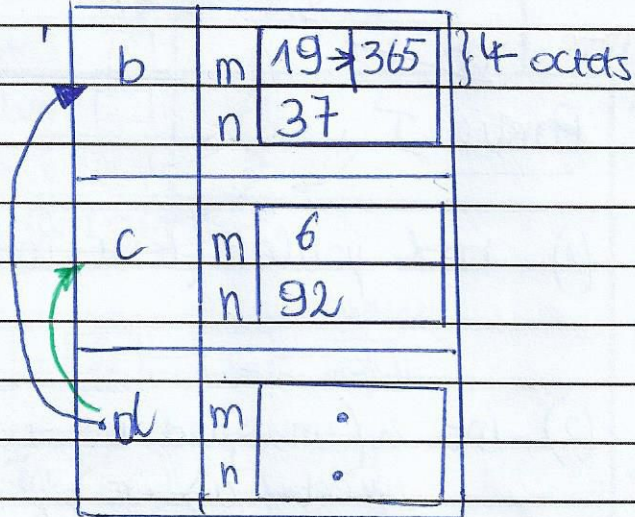 b m 19→365 }4 octets
n 37
c m 6
n 92
d m .
n .